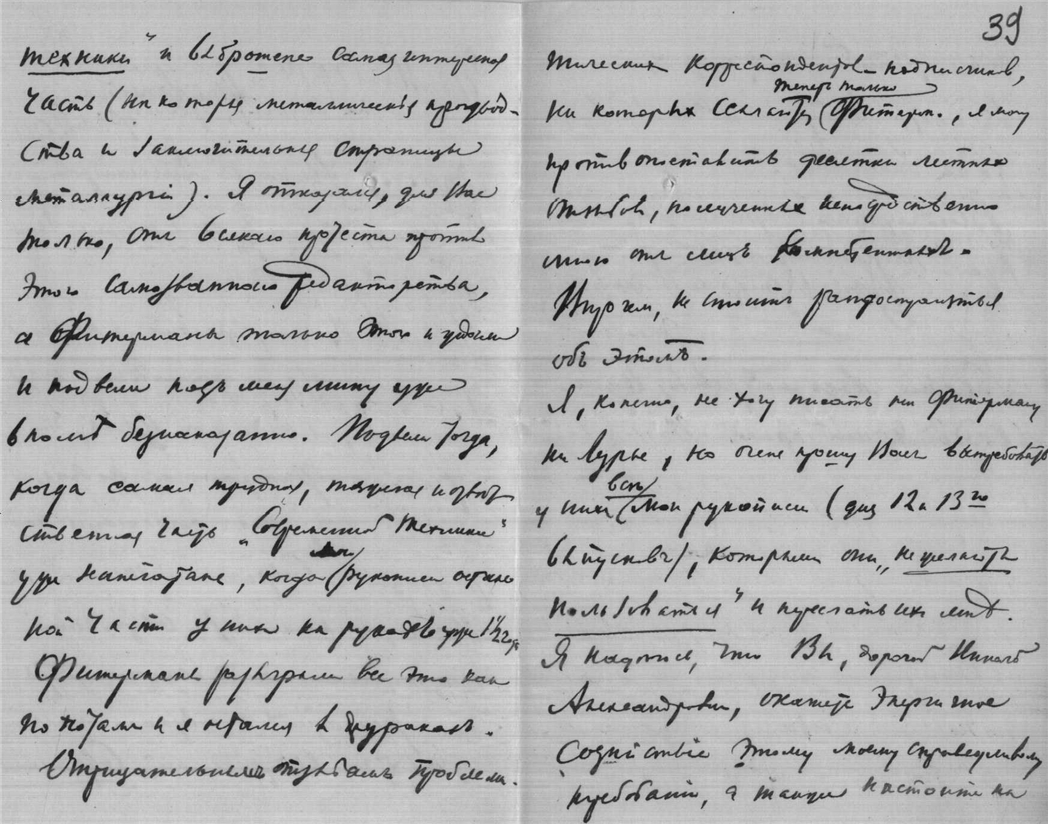 техники" и выброшена самая интересная
часть (некоторые металлическія производ-
ства и заключительныя страницы
металлургіи). Я отказался, для Вас
только, отъ всякаго протеста противъ
этого самозваннаго редакторства,
а Фитерманы только этого и ждали
и подвели подъ меня мину уже
вполнѣ безнаказанно. Подвели тогда,
когда самая трудная, тяжелая и отвѣт
ственная часть "Современной техники"
уже напечатана, когда мои рукописи остальной
ной части у них на руках уже 1 1/2 года
Фитерманы разыграли все это как
по нотам и я остался в дураках.
Отрицательнымъ отзывамъ проблема-
39
тических корреспондентов-подписчиков,
на которых теперь только ссылается Фитерман, я могу
противопоставить десятки лестных
отзывов, полученных непосредственно
мною отъ лицъ компетентныхъ.
Впрочем, не стоитъ распространяться
объ этомъ.
Я, конечно, не хочу писать ни Фитерману
ни Лурье, но очень прошу Васъ вытребовать
у них всѣ мои рукописи (для 12 и 13го
выпусковъ), которыми они "не желаютъ
пользоваться" и переслать их мнѣ.
Я надѣюсь, что Вы, дорогой Николай
Александрович, окажете энергичное
содѣйствіе этому моему справедливому
требованію, а также настоите на